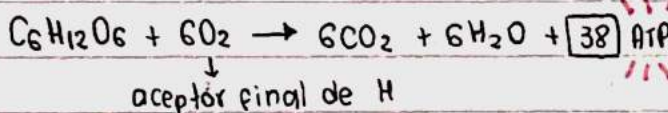 C6H12O6 + 6O2 → 6CO2 + 6H2O + 38 ATP
↓
aceptor final de H